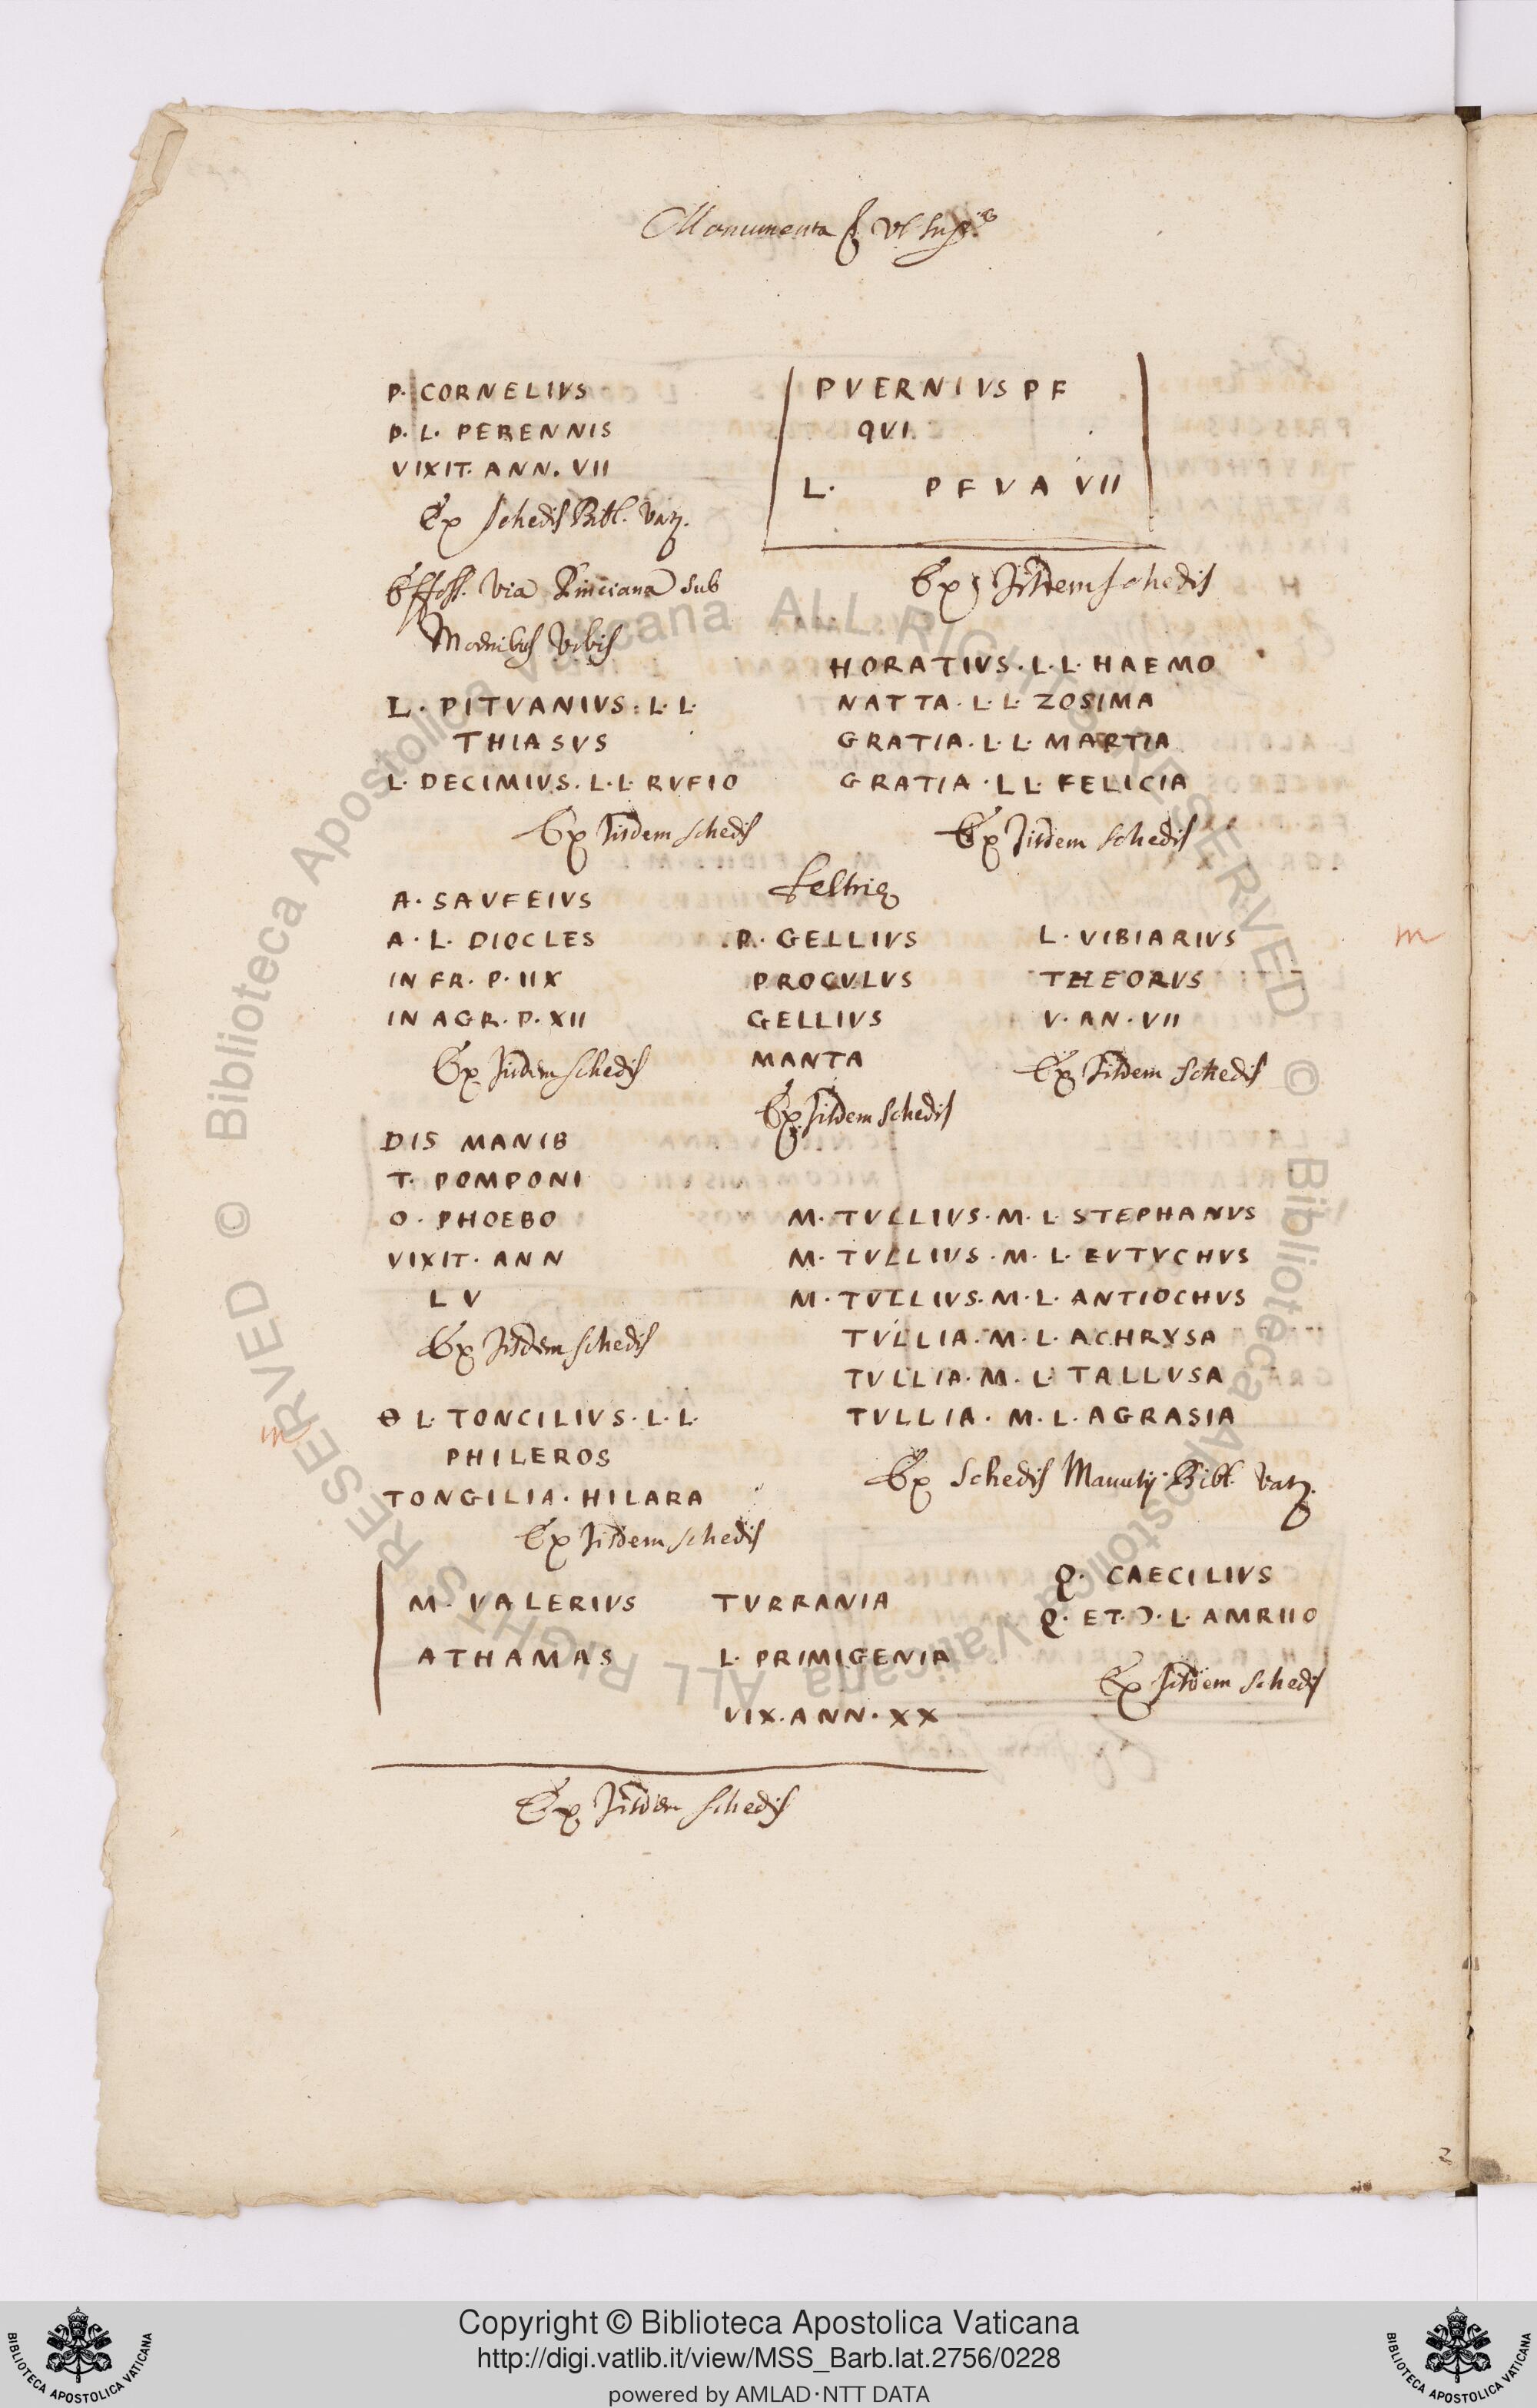 Monumenta
P. CORNELIVS
P. L. PERENNIS
VIXIT. ANN. VII
Ex schedis Bibl. Vatj.
PVERNIVS P F
QVI
L. P F V A VII
Ex iisdem schedis
Effoss. Via Pinciana sub
Moenibus Urbis
L. PITVANIVS. L. L.
THIASVS
L. DECIMIVS. L. L. RVFIO
Ex iisdem schedis
HORATIVS. L. L. HAEMO
NATTA. L. L. ZOSIMA
GRATIA. L. L. MARTIA
GRATIA. L L. FELICIA
Ex iisdem schedis
A. SAVFEIVS
A. L. DIOCLES
IN FR. P. IIX
IN AGR. P. XII
Ex iisdem schedis
P. GELLIVS
PROCVLVS
GELLIVS
MANTA
Ex iisdem schedis
L. VIBIARIVS
THEORVS
V. AN. VII
Ex iisdem schedis
m
DIS MANIB
T. POMPONI
O. PHOEBO
VIXIT. ANN
L V
Ex iisdem schedis
M. TVLLIVS. M. L. STEPHANVS
M. TVLLIVS. M. L. EVTVCHVS
M. TVLLIVS. M. L. ANTIOCHVS
TVLLIA. M. L. ACHRYSA
TVLLIA. M. L. TALLVSA
TVLLIA. M. L. AGRASIA
Ex schedis Manutij Bibl. Vatj.
m
Θ L. TONCILIVS. L. L.
PHILEROS
TONGILIA. HILARA
Ex iisdem schedis
M. VALERIVS TVRRANIA
ATHAMAS L. PRIMIGENIA
VIX. ANN. XX
Ex iisdem schedis
Q. CAECILIVS
Q. ET. Ɔ. L. AMRIIO
Ex iisdem schedis
© Biblioteca Apostolica Vaticana ALL RIGHTS RESERVED © Biblioteca Apostolica Vaticana ALL RIGHTS RESERVED
Copyright © Biblioteca Apostolica Vaticana
http://digi.vatlib.it/view/MSS_Barb.lat.2756/0228
powered by AMLAD·NTT DATA
BIBLIOTECA APOSTOLICA VATICANA
BIBLIOTECA APOSTOLICA VATICANA